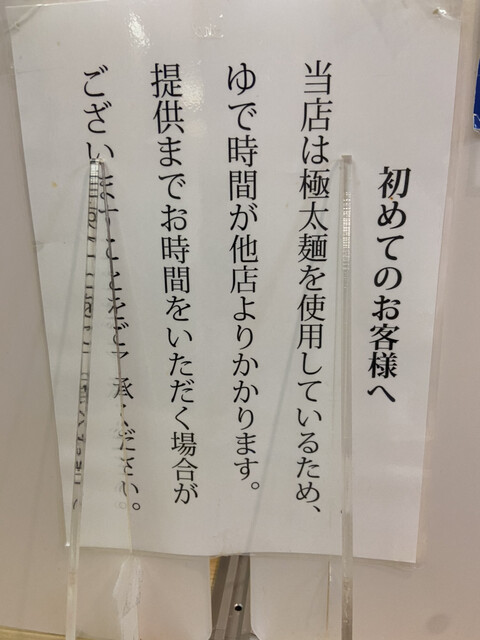 初めてのお客様へ
当店は極太麺を使用しているため、
ゆで時間が他店よりかかります。
提供までお時間をいただく場合が
ございますことをご了承ください。